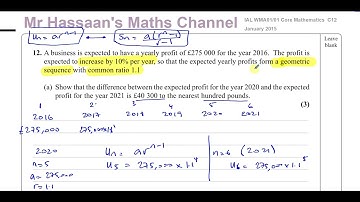 Mr Hassaan's Maths Channel
IAL WMA01/01 Core Mathematics C12
January 2015
Leave
blank
uₙ = arⁿ⁻¹
Sₙ = a(rⁿ-1)
r-1
12. A business is expected to have a yearly profit of £275 000 for the year 2016. The profit is
expected to increase by 10% per year, so that the expected yearly profits form a geometric
sequence with common ratio 1.1
(a) Show that the difference between the expected profit for the year 2020 and the expected
profit for the year 2021 is £40 300 to the nearest hundred pounds.
(3)
1 2 3 4 5 6
2016 2017 2018 2019 2020 2021
£275,000
2020
n=5
a=275,000
r=1.1
Uₙ = arⁿ⁻¹
U₅ = 275,000 x 1.1⁴
n=6 (2021)
U₆ = 275,000 x 1.1⁵